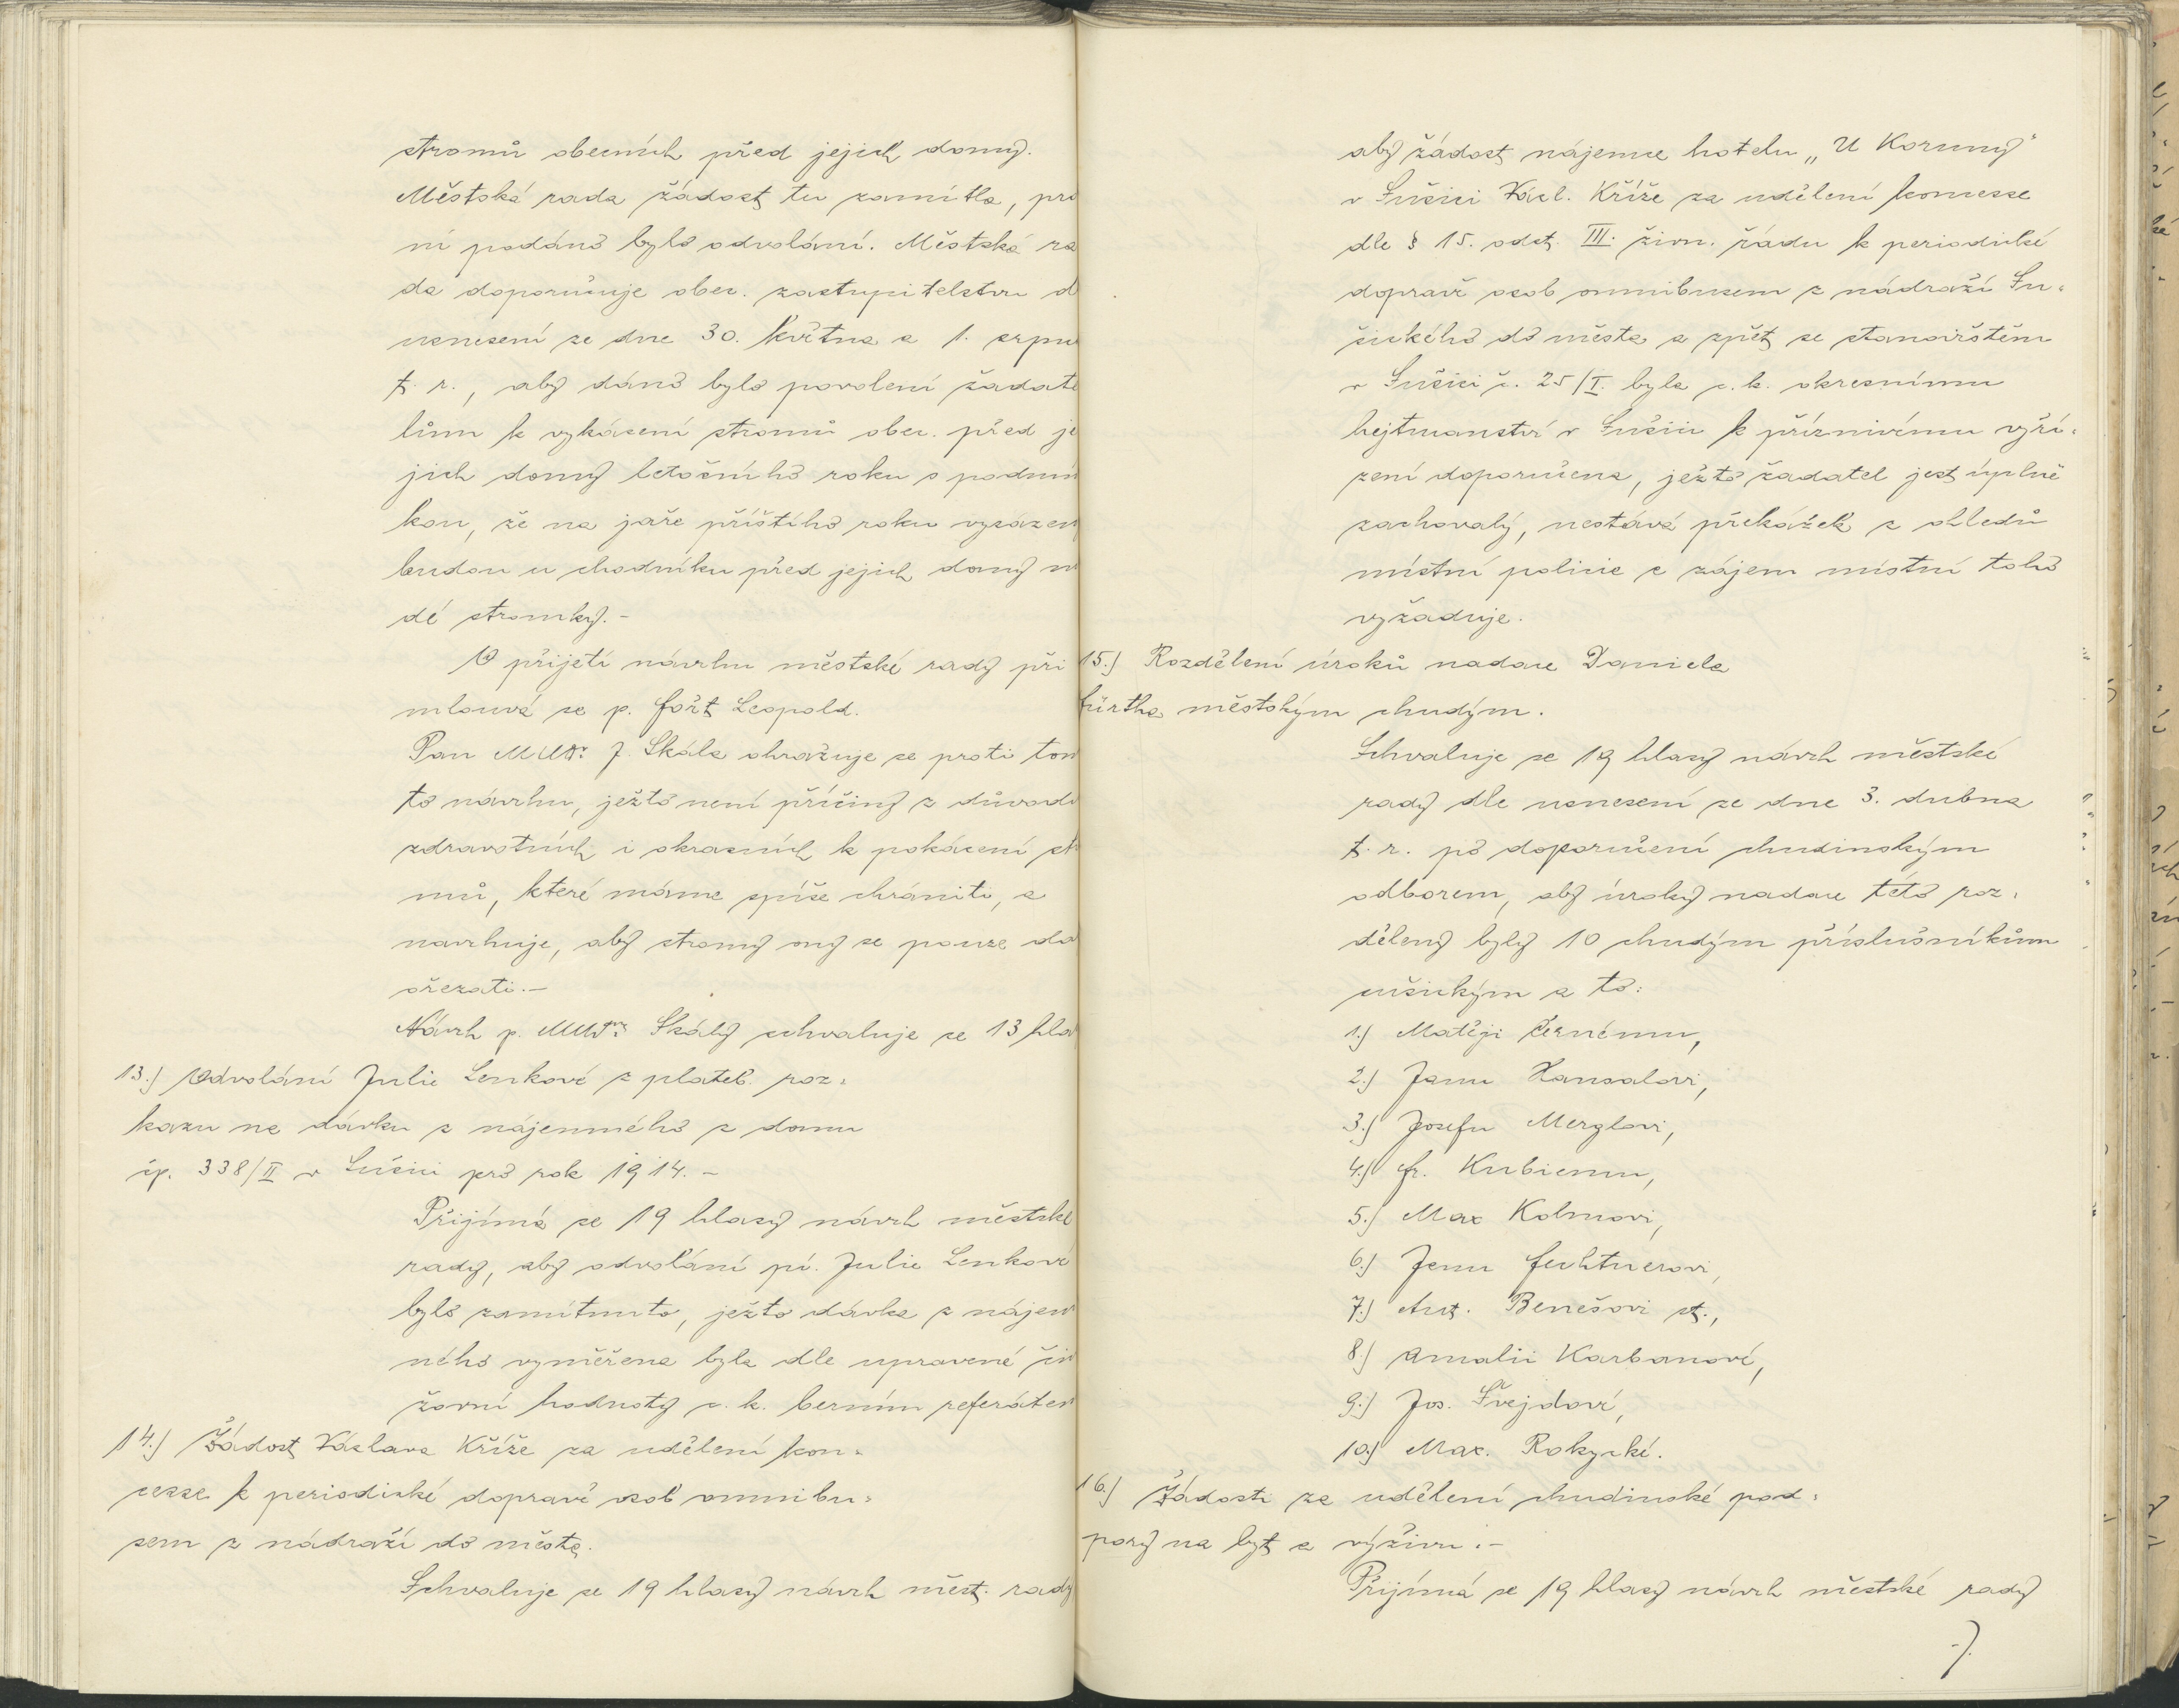 stromů obecních před jejich domy.
Městská rada žádost tu zamítla, pro
ní podáno bylo odvolání. Městská ra
da doporučuje obec. zastupitelstvu d
usnesení ze dne 30. května a 1. srpn
t. r., aby dáno bylo povolení žadate
lům k vykácení stromů obec. před je
jich domy letošního roku s podmín
kou, že na jaře příštího roku vysázen
budou u chodníku před jejich domy m
dé stromky.-
O přijetí návrhu městské rady při
mlouvá se p. Fořt Leopold.
Pan MUDr. J. Skála ohražuje se proti tom
to návrhu, ježto není příčiny z důvodů
zdravotních i okrasných k pokácení st
mů, které máme spíše chrániti, a
navrhuje, aby stromy ony se pouze da
ořezati.-
Návrh p. MUDra Skály schvaluje se 13 hla
13.) Odvolání Julie Lenkové z plateb. roz-
kazu na dávku z nájemného z domu
čp. 338/II v Sušici pro rok 1914.-
Přijímá se 19 hlasy návrh městské
rady, aby odvolání pí. Julie Lenkové
bylo zamítnuto, ježto dávka z nájem
ného vyměřena byla dle upravené čin
žovní hodnoty c. k. berním referátem
14.) Žádost Václava Kříže za udělení kon-
cesse k periodické dopravě osob omnibu-
sem z nádraží do města.
Schvaluje se 19 hlasy návrh měst. rady
aby žádost nájemce hotelu „U Koruny"
v Sušici Václ. Kříže za udělení koncesse
dle § 15. odst. III. živn. řádu k periodické
dopravě osob omnibusem z nádraží Su-
šického do města a zpět se stanovištěm
v Sušici č. 25/I. byla c. k. okresnímu
hejtmanství v Sušici k příznivému vyří-
zení doporučena, ježto žadatel jest úplně
zachovalý, nestává překážek z ohledů
místní policie a zájem místní toho
vyžaduje.
15.) Rozdělení úroků nadace Daniela
Fürtha městským chudým.
Schvaluje se 19 hlasy návrh městské
rady dle usnesení ze dne 3. dubna
t. r. po doporučení chudinským
odborem, aby úroky nadace této roz-
děleny byly 10 chudým příslušníkům
sušickým a to:
1.) Matěji Černému,
2.) Janu Hansalovi,
3.) Josefu Merglovi,
4.) Fr. Kubicemu,
5.) Max Kohnovi,
6.) Janu Feuhtnerovi,
7.) Ant. Benešovi st.,
8.) Amalii Karbanové,
9.) Jos. Švejdové,
10.) Max. Rokycké.
16.) Žádosti za udělení chudinské pod-
pory na byt a výživu:-
Přijímá se 19 hlasy návrh městské rady